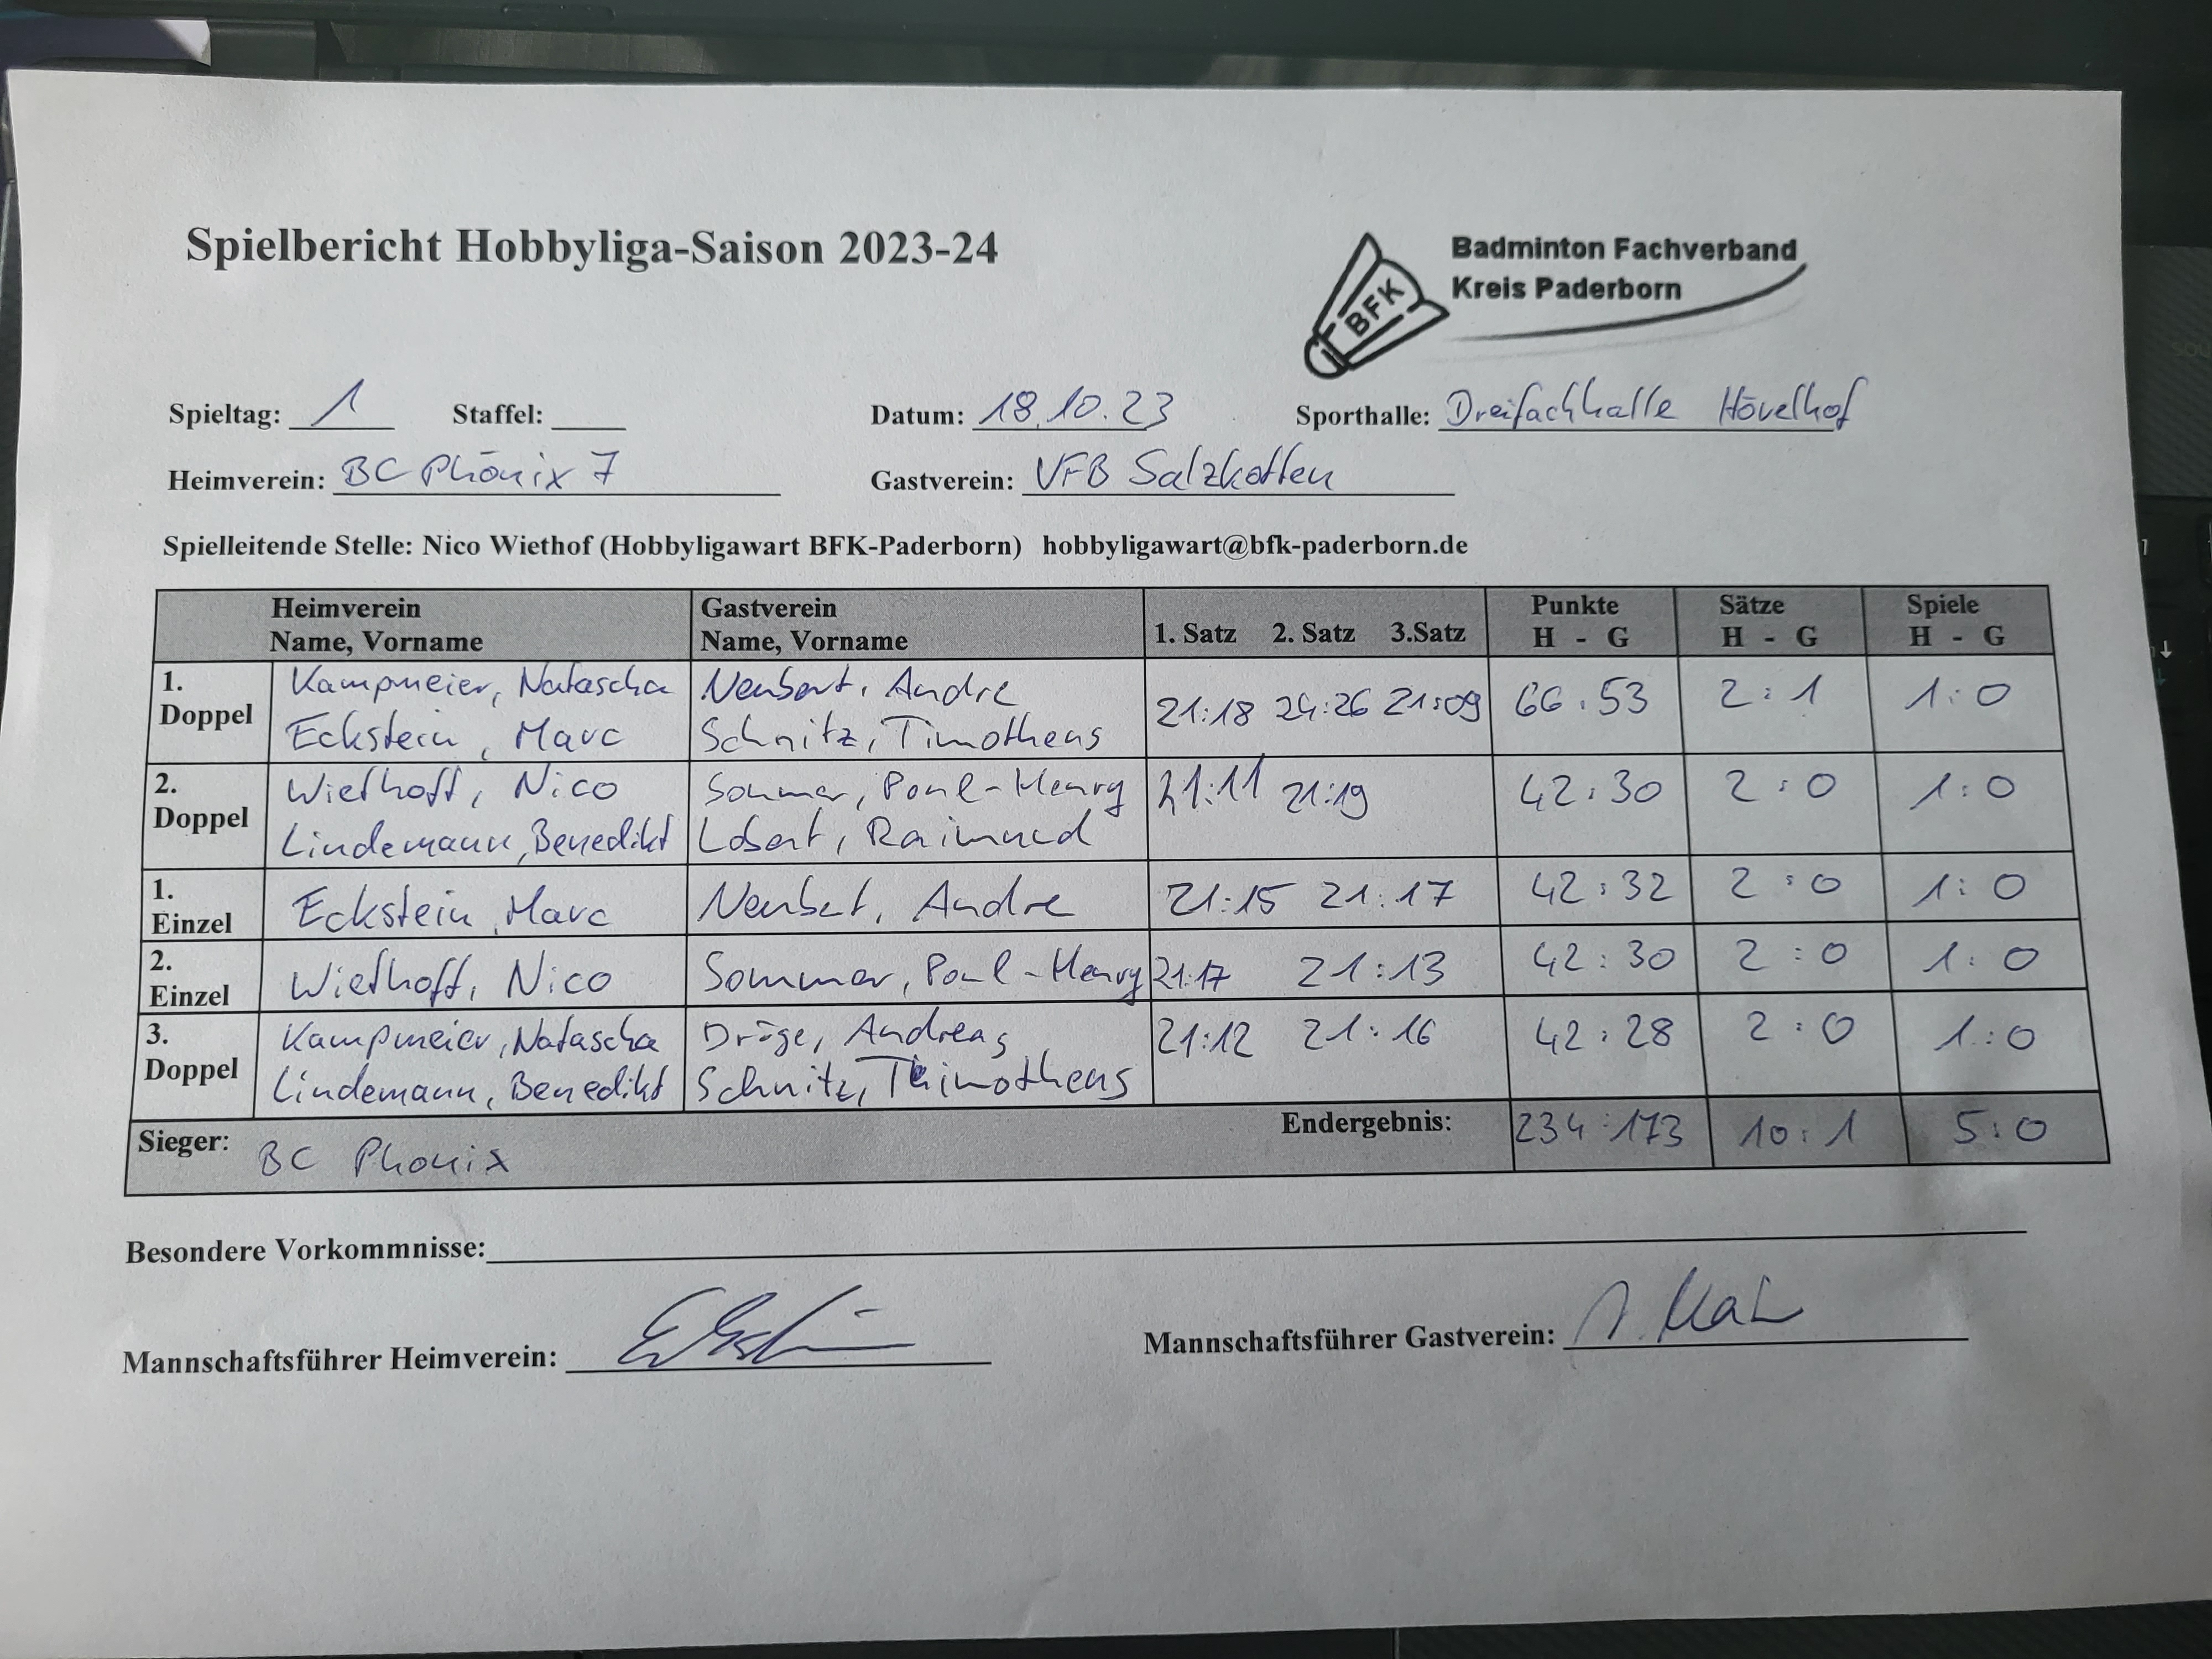 Spielbericht Hobbyliga-Saison 2023-24
Badminton Fachverband
Kreis Paderborn
BFK
Spieltag: 1 Staffel: Datum: 18.10.23 Sporthalle: Dreifachhalle Hövelhof
Heimverein: BC Phönix 7 Gastverein: VFB Salzkotten
Spielleitende Stelle: Nico Wiethof (Hobbyligawart BFK-Paderborn) hobbyligawart@bfk-paderborn.de
Heimverein Gastverein Punkte Sätze Spiele
Name, Vorname Name, Vorname 1. Satz 2. Satz 3.Satz H - G H - G H - G
1. Kampmeier, Natascha Neubert, Andre 21:18 24:26 21:09 66:53 2:1 1:0
Doppel Eckstein, Marc Schnitz, Timotheus
2. Wiethoff, Nico Sommer, Paul-Henry 21:11 21:19 42:30 2:0 1:0
Doppel Lindemann, Benedikt Lobert, Raimund
1. Eckstein, Marc Neubert, Andre 21:15 21:17 42:32 2:0 1:0
Einzel
2. Wiethoff, Nico Sommer, Paul-Henry 21:17 21:13 42:30 2:0 1:0
Einzel
3. Kampmeier, Natascha Dröge, Andreas 21:12 21:16 42:28 2:0 1:0
Doppel Lindemann, Benedikt Schnitz, Timotheus
Sieger: BC Phönix Endergebnis: 234:173 10:1 5:0
Besondere Vorkommnisse:
Mannschaftsführer Heimverein: Mannschaftsführer Gastverein: